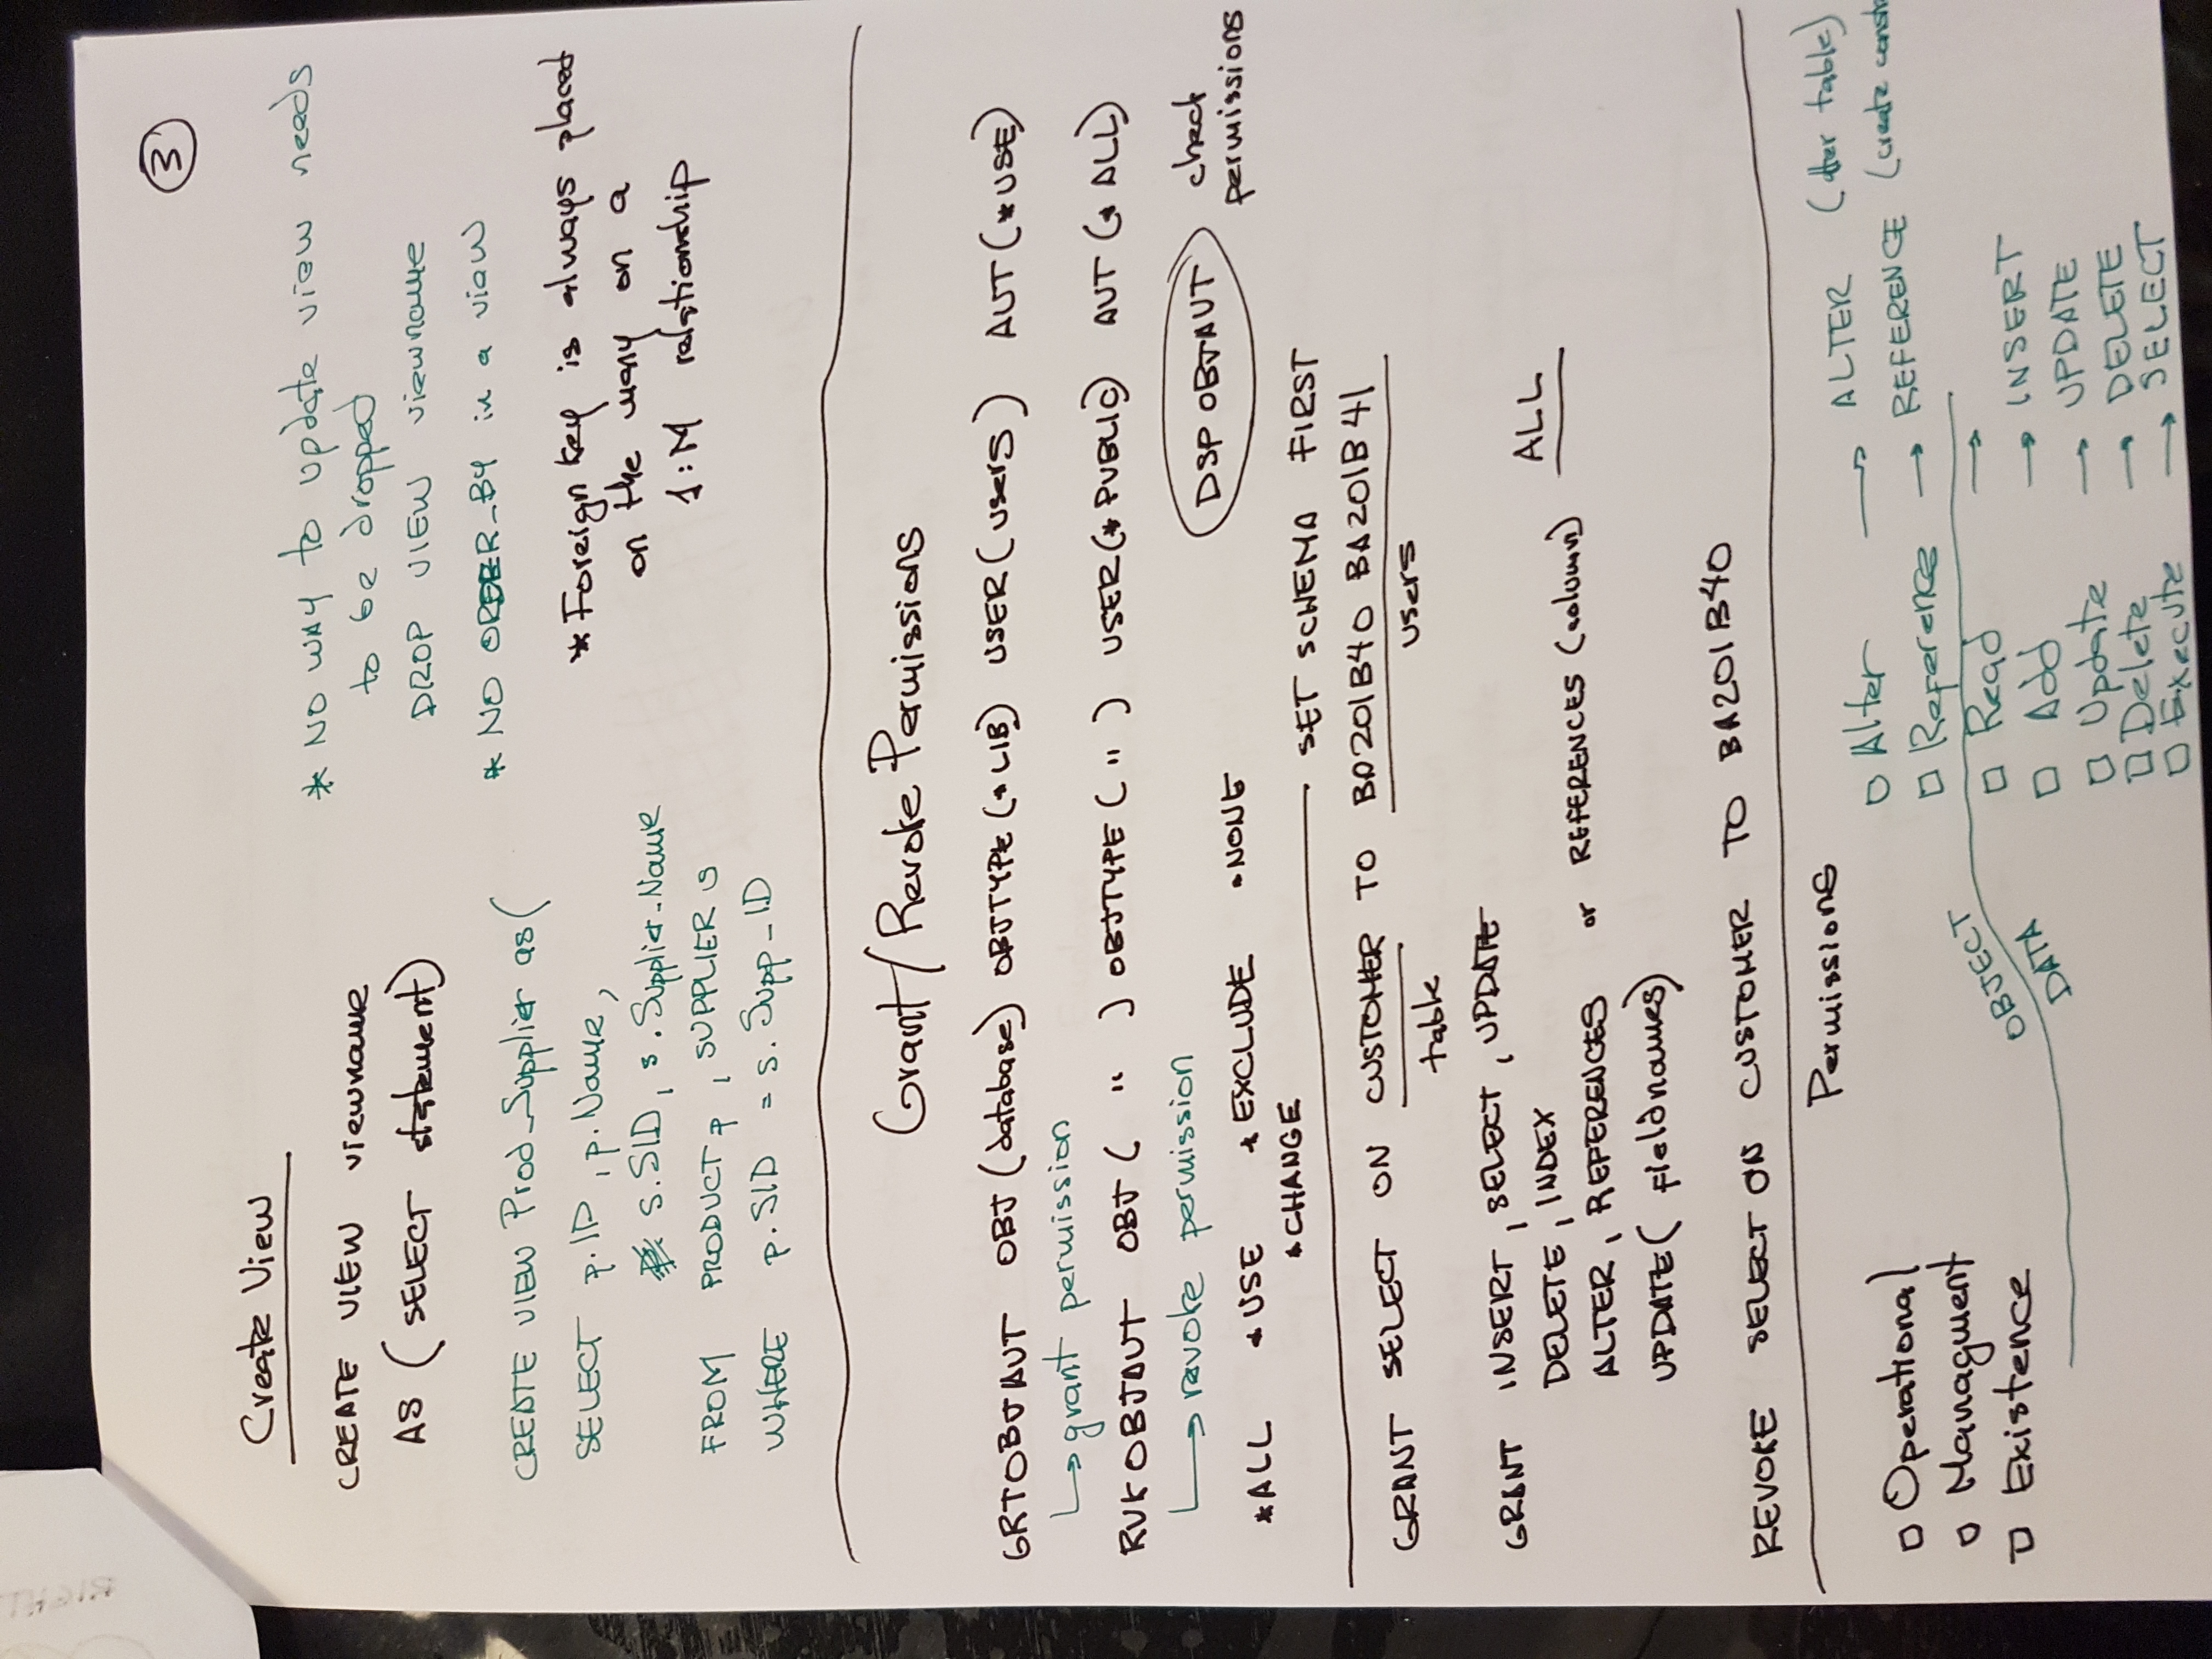 3
Create View
CREATE VIEW viewname
AS (SELECT statement)
CREATE VIEW Prod_Supplier as(
SELECT p.ID, p.Name,
s.SID, s.Supplier_Name
FROM PRODUCT p, SUPPLIER s
WHERE p.SID = s.Supp_ID
* NO WAY to update view needs
to be dropped
DROP VIEW viewname
* NO ORDER_BY in a view
* Foreign key is always placed
on the many on a
1:M relationship
Grant/Revoke Permissions
GRTOBJAUT OBJ (database) OBJTYPE (*LIB) USER (users) AUT (*USE)
↳ grant permission
RVKOBJAUT OBJ ( " ) OBJTYPE ( " ) USER (*PUBLIC) AUT (*ALL)
↳ revoke permission
DSPOBJAUT check
permissions
*ALL *USE *EXCLUDE *NONE
*CHANGE
SET SCHEMA FIRST
GRANT SELECT ON CUSTOMER TO BA201B40 BA201B41
table users
GRANT INSERT, SELECT, UPDATE
DELETE, INDEX
ALTER, REFERENCES or REFERENCES (column) ALL
UPDATE( fieldnames)
REVOKE SELECT ON CUSTOMER TO BA201B40
Permissions
□ Operational
□ Managment
□ Existence
OBJECT
DATA
□ Alter → ALTER (alter table)
□ Reference → REFERENCE (create
□ Read →
□ Add → INSERT
□ Update → UPDATE
□ Delete → DELETE
□ Execute → SELECT